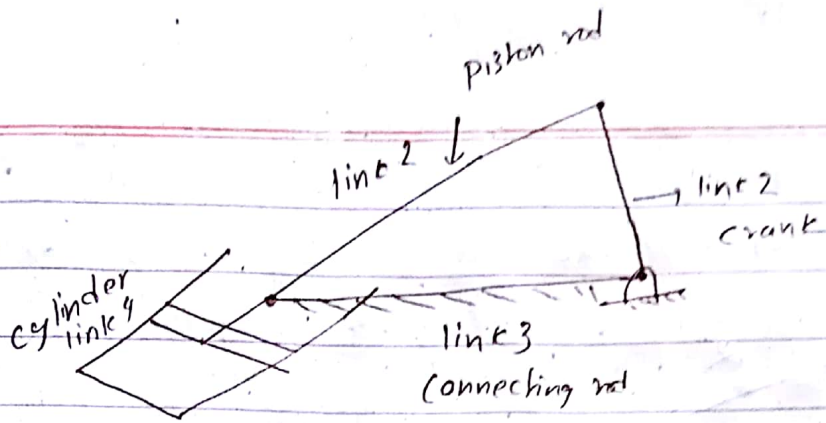 piston rod
link 2
link 2
crank
cylinder
link 4
link 3
connecting rod